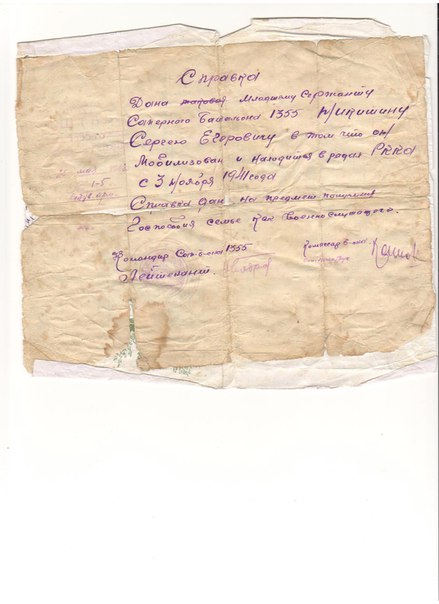 Справка
Дана таковая Младшему Сержанту
Саперного Батальона 1355
Сергею Егоровичу в том что он
Мобилизован и находится в рядах РККА
с 3 Ноября 1941 года
Справка дана на предмет получения
Госпособия семье как Военнослужащего.
Командир Сап. б-она 1355
Лейтенант.
Комиссар б-она